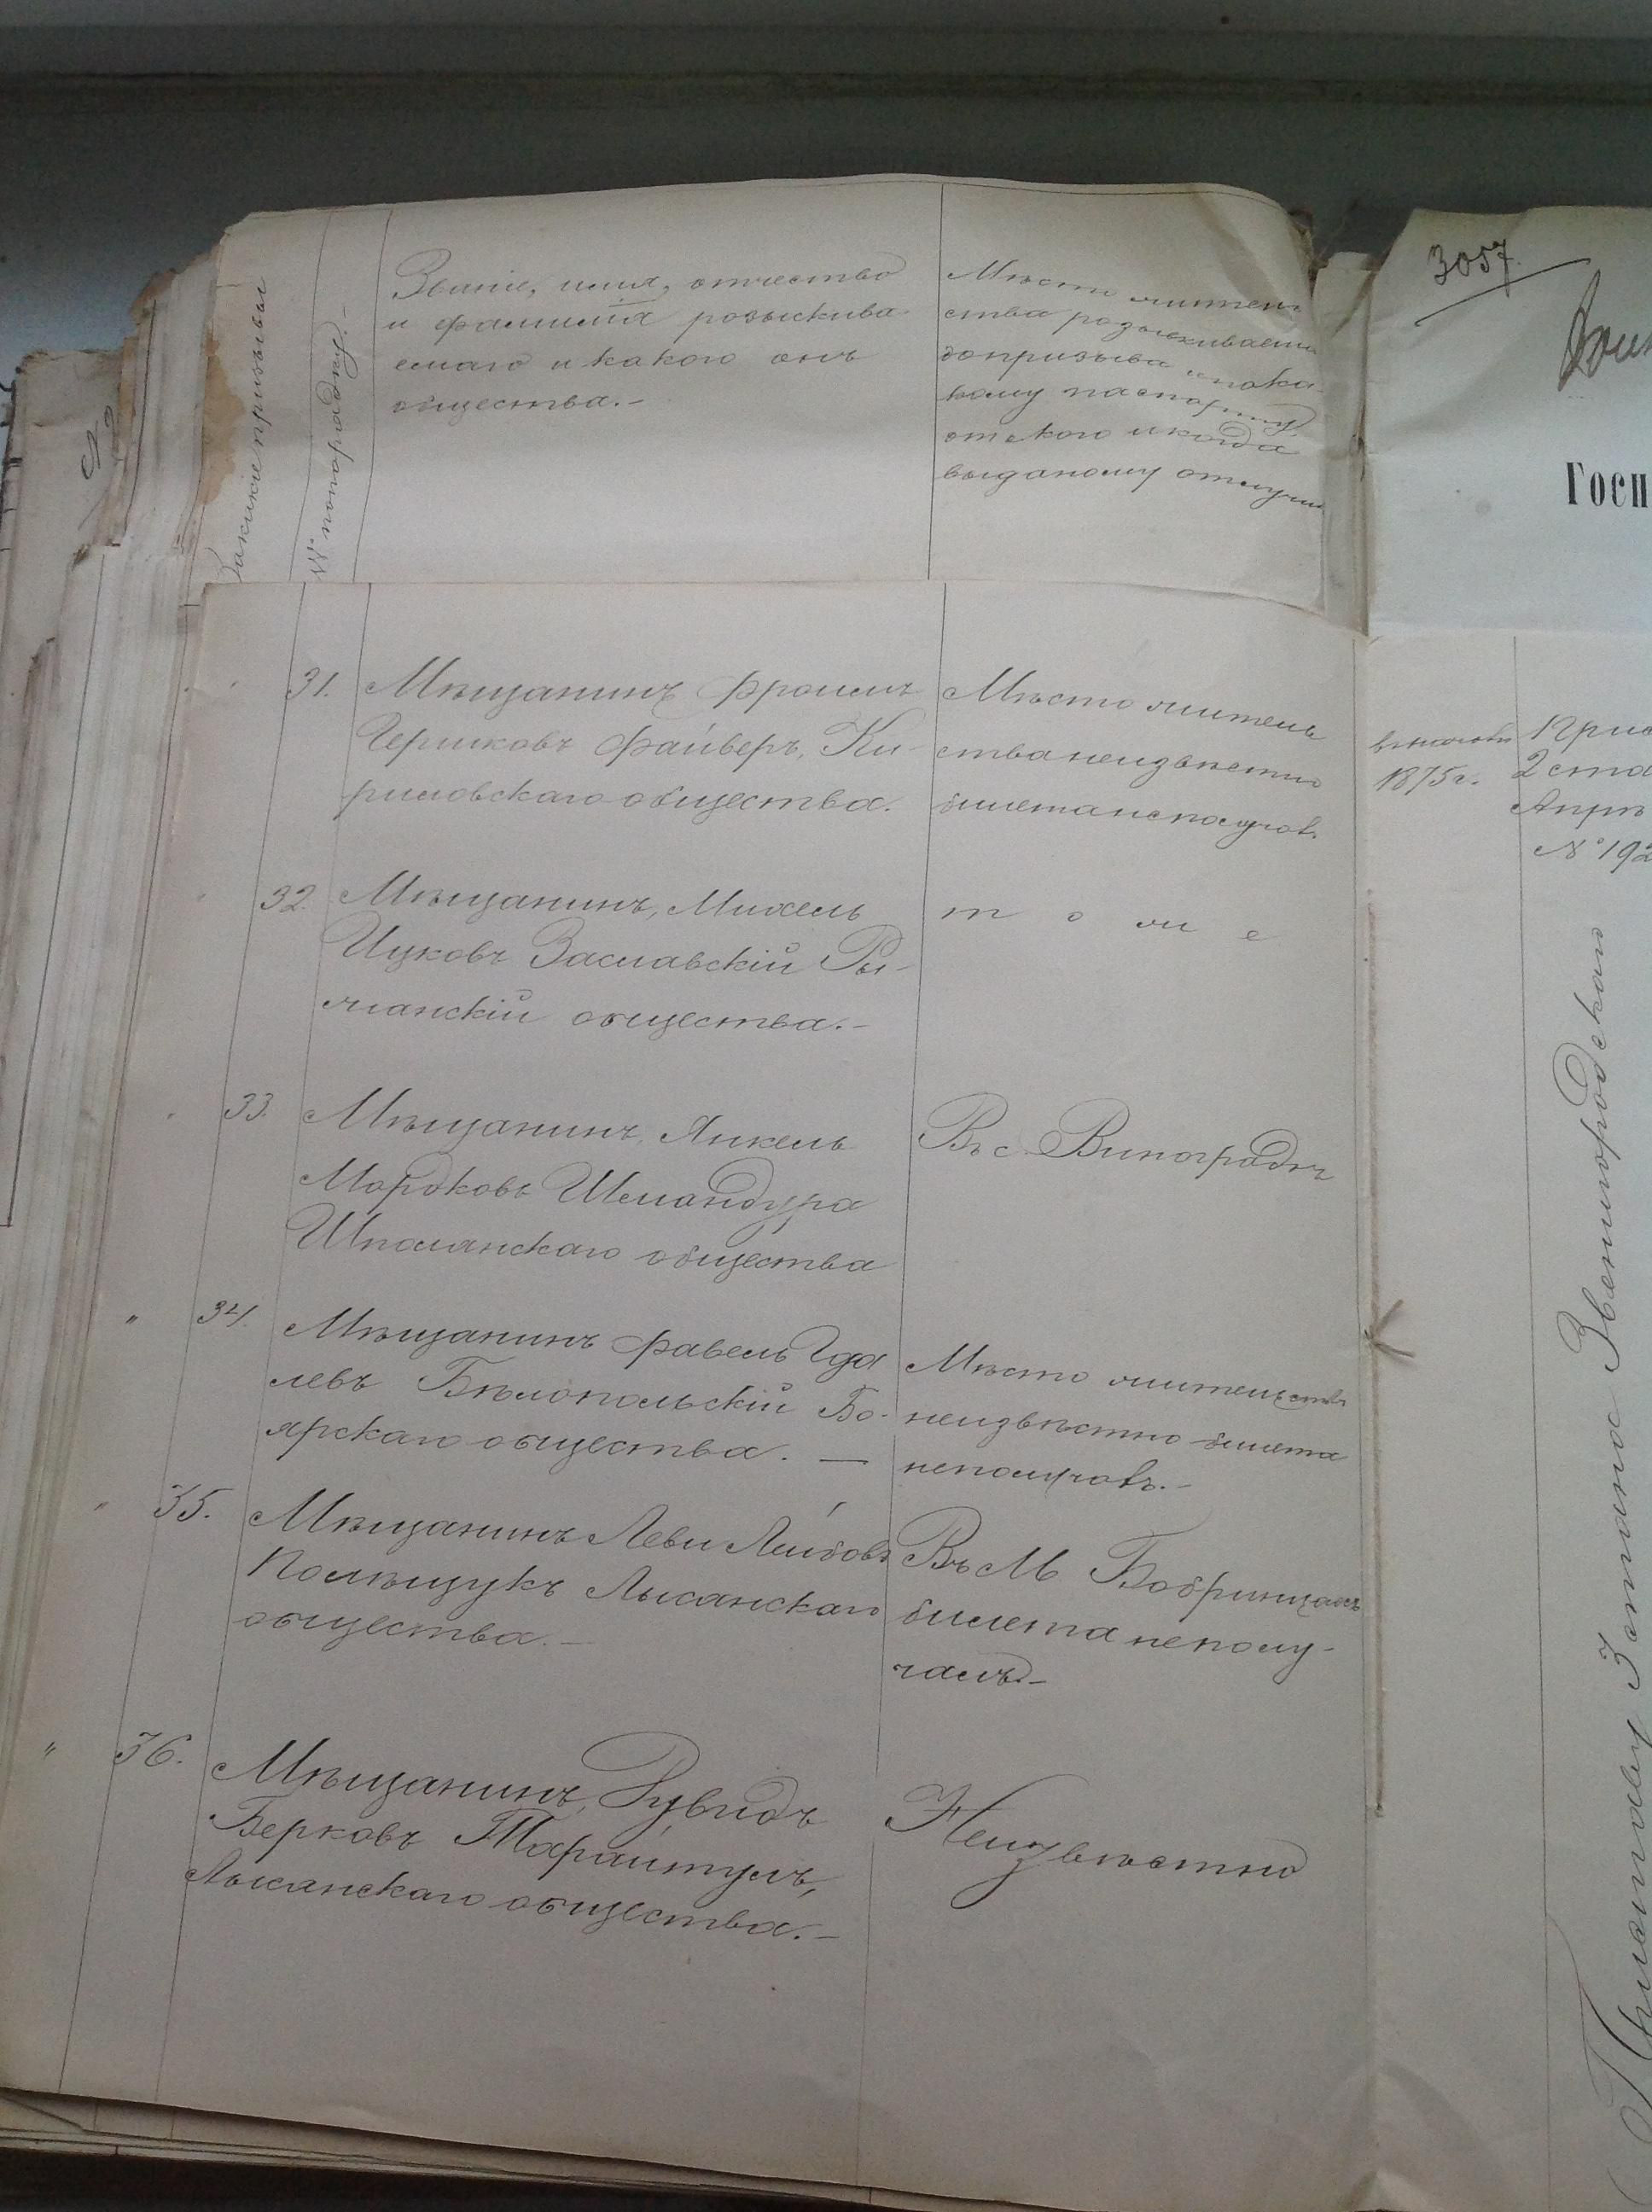 Званіе, имя, отчество
и фамилія розыскива-
емаго и какого онъ
общества.-
Мѣсто житель
ства розыскиваема
до призыва и пока-
кому паспорту,
отъ кого и когда
выданому отлучил
какіе призывы
№ по порядку.-
31.
Мѣщанинъ Фроимъ
Гершковъ Файверъ, Ки-
риловскаго общества.
Мѣсто житель
ства неизвѣстно
билета не получал.
32.
Мѣщанинъ, Михель
Ицковъ Заславскій Ры-
жанскій общества.-
т о ж е
33.
Мѣщанинъ, Янкель
Мордковъ Шмандура
Шполянскаго общества
Въ с. Виноградѣ
" 34.
Мѣщанинъ Фавель Гда
левъ Бѣлопольскій Бо-
ярскаго общества. —
Мѣсто жительств
неизвѣстно билета
неполучалъ.-
" 35.
Мѣщанинъ Леви Лейбовъ
Полѣщукъ Лысанскаго
общества.-
Въ М. Бобринцахъ
билета неполу-
чалъ-
" 36.
Мѣщанинъ, Рувидъ
Берковъ Тарайтулъ,
Лысанскаго общества.-
Неизвѣстно
1875 г.
2 ста
№ 192
3057.
Госп
Звенигородскаго